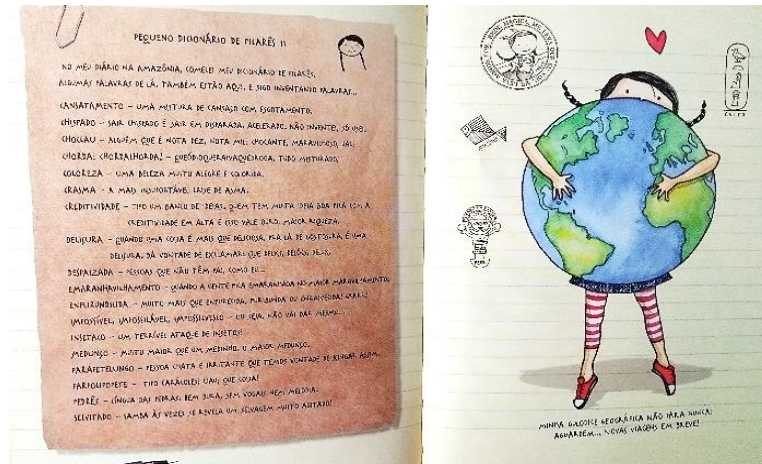 PEQUENO DICIONÁRIO DE PILARÊS II
NO MEU DIÁRIO NA AMAZÔNIA, COMECEI MEU DICIONÁRIO DE PILARÊS.
ALGUMAS PALAVRAS DE LÁ, TAMBÉM ESTÃO AQUI. E SIGO INVENTANDO PALAVRAS...
CANSATAMENTO – UMA MISTURA DE CANSAÇO COM ESGOTAMENTO.
CHISPADO – SAIR CHISPADO É SAIR EM DISPARADA, ACELERADO. NÃO INVENTEI, SÓ USEI.
CHOCLAU – ALGUÉM QUE É NOTA DEZ, NOTA MIL: CHOCANTE, MARAVILHOSO,
TUDO MISTURADO.
COLOREZA – UMA BELEZA MUITO ALEGRE E COLORIDA.
CRASMA – A MAIS INSUPORTÁVEL CRISE DE ASMA.
CREDITIVIDADE – TIPO UM BANCO DE IDEIAS. QUEM TEM MUITA IDEIA BOA FICA COM A
CREDITIVIDADE EM ALTA E ISSO VALE OURO. MAIOR RIQUEZA.
DELISURA – QUANDO UMA COISA É MAIS QUE DELICIOSA, PRA LÁ DE GOSTOSURA, É UMA
DELISURA. DÁ VONTADE DE EXCLAMAR:
DESPAIZADA – PESSOAS QUE NÃO TÊM PAI, COMO EU...
EMARANHAVILHAMENTO – QUANDO A GENTE FICA EMARANHADA NO MAIOR MARAVILHAMENTO.
ENFURUNDIDA – MUITO MAIS QUE ENFURECIDA,
IMPOSSÍVEL, – OU SEJA, NÃO VAI DAR MESMO...
INSETACO – UM TERRÍVEL ATAQUE DE INSETOS!
MEDUNÇO – MUITO MAIOR QUE UM MEDINHO. O MAIOR MEDUNÇO.
PARAPETELUNGO – PESSOA CHATA E IRRITANTE QUE TEMOS VONTADE DE XINGAR ASSIM.
– TIPO CARACOLES! UAU, QUE COISA!
PEDRÊS – LÍNGUA DAS PEDRAS. BEM DURA, SEM VOGAIS NEM MELODIA.
SELVITADO – SAMBA ÀS VEZES SE REVELA UM SELVAGEM MUITO AGITADO!
MINHA GULODICE GEOGRÁFICA NÃO PARA NUNCA!
AGUARDEM... NOVAS VIAGENS EM BREVE!